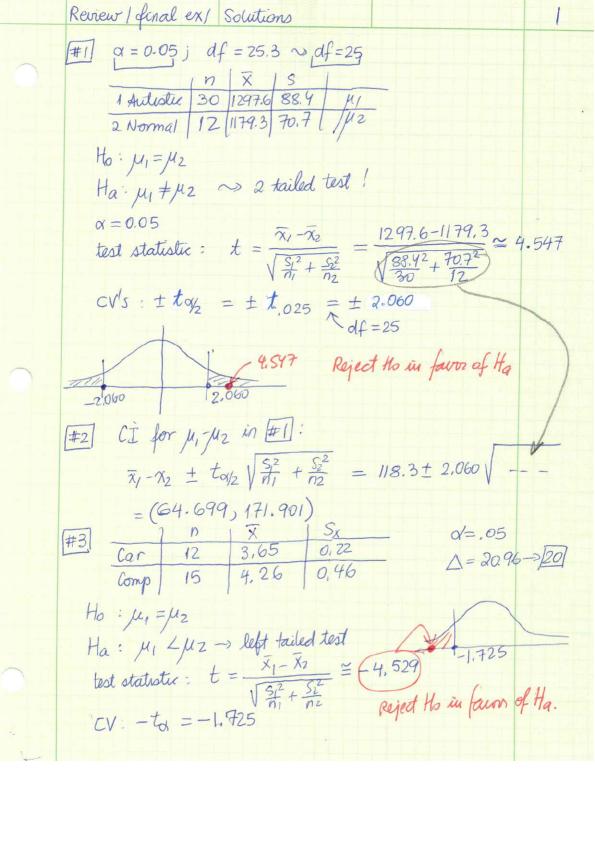 Review / final ex / Solutions 1
#1 α = 0.05 ; df = 25.3 ~> df = 25
n x̄ s
1 Autistic 30 1297.6 88.4 μ1
2 Normal 12 1179.3 70.7 μ2
Ho : μ1 = μ2
Ha : μ1 ≠ μ2 ~> 2 tailed test !
α = 0.05
test statistic : t = (x̄1 - x̄2) / √(s1²/n1 + s2²/n2) = (1297.6 - 1179.3) / √(88.4²/30 + 70.7²/12) ≅ 4.547
CV's : ± tα/2 = ± t.025 = ± 2.060
df = 25
4.547 Reject Ho in favor of Ha
-2.060 2.060
#2 CI for μ1-μ2 in #1 :
x̄1 - x2 ± tα/2 √(s1²/n1 + s2²/n2) = 118.3 ± 2.060 √ - - -
= (64.699, 171.901)
#3 n x̄ Sx α = .05
Car 12 3,65 0,22
Comp 15 4.26 0,46 Δ = 20.96 → 20
Ho : μ1 = μ2
Ha : μ1 < μ2 → left tailed test
test statistic : t = (x̄1 - x̄2) / √(s1²/n1 + s2²/n2) ≅ -4,529
-1.725
Reject Ho in favor of Ha.
CV : -tα = -1.725